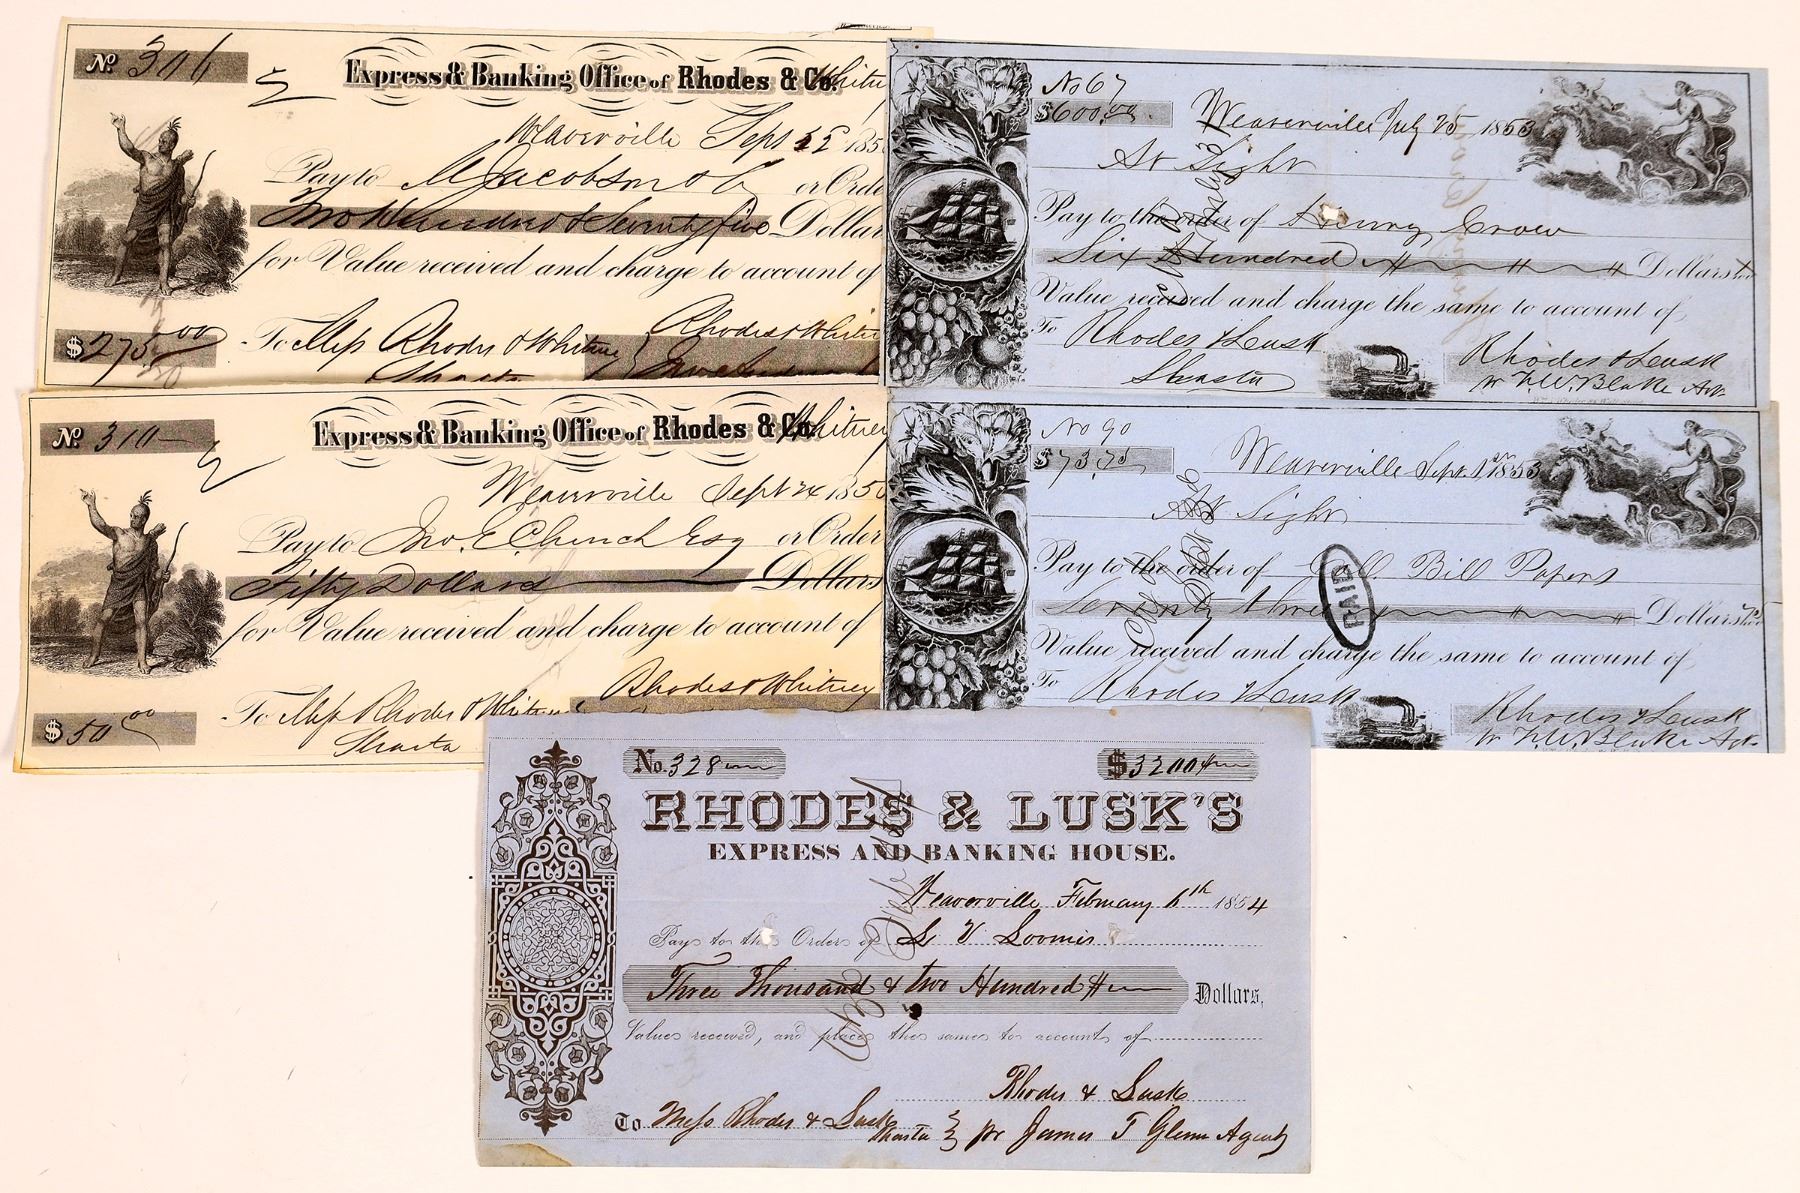 No. 306
Express & Banking Office of Rhodes & Co. Whitn
Weaverville Sept 185
Pay to M Jacobson & Co or Orde
Two Hundred & Seventy five Dollar
for Value received and charge to account of
$275.00
To Mess Rhodes & Whitney
Shasta
Rhodes & Whitn
No. 310
Express & Banking Office of Rhodes & Co. Whitney
Weaverville Sept 24 185
Pay to Jno. E. Church Esq or Order
Fifty Dollars Dollars
for Value received and charge to account of
$50.00
To Mess Rhodes & Whitn
Shasta
Rhodes & Whitney
No 67
$600.00 Weaverville July 25 1853
At Sight
Pay to the order of Henry Crow
Six Hundred Dollars
Value received and charge the same to account of
To Rhodes & Lusk
Shasta
Rhodes & Lusk
pr F. W. Blake Agt
No 90
$73.75 Weaverville Sept. 1853
At Sight
Pay to the order of Bill Papers
Seventy three Dollars
PAID
Value received and charge the same to account of
To Rhodes & Lusk
Rhodes & Lusk
pr F. W. Blake Agt
No. 328 $3200
RHODES & LUSK'S
EXPRESS AND BANKING HOUSE.
Weaverville February 6th 1854
Pay to the Order of L V Loomis
Three Thousand & two Hundred Dollars,
Value received, and place the same to account of
Rhodes & Lusk
To Mess Rhodes & Lusk
Shasta
pr James T Glenn Agent